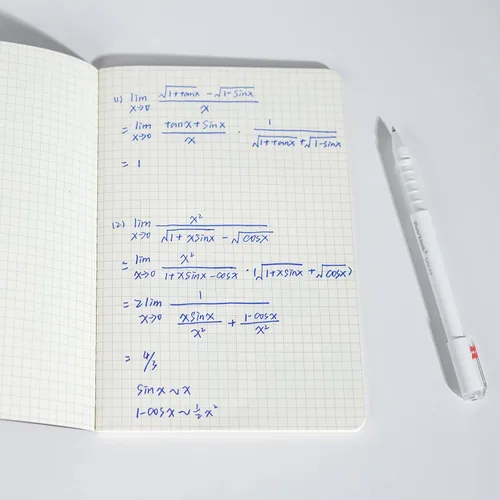 (1) lim x→0 (√(1+tanx) − √(1−sinx)) / x
= lim x→0 (tanx + sinx) / x · 1 / (√(1+tanx) + √(1−sinx))
= 1
(2) lim x→0 x² / (√(1+xsinx) − √cosx)
= lim x→0 x² / (1+xsinx−cosx) · (√(1+xsinx) + √cosx)
= 2 lim x→0 1 / (xsinx/x² + (1−cosx)/x²)
= 4/3
sinx ~ x
1−cosx ~ ½x²